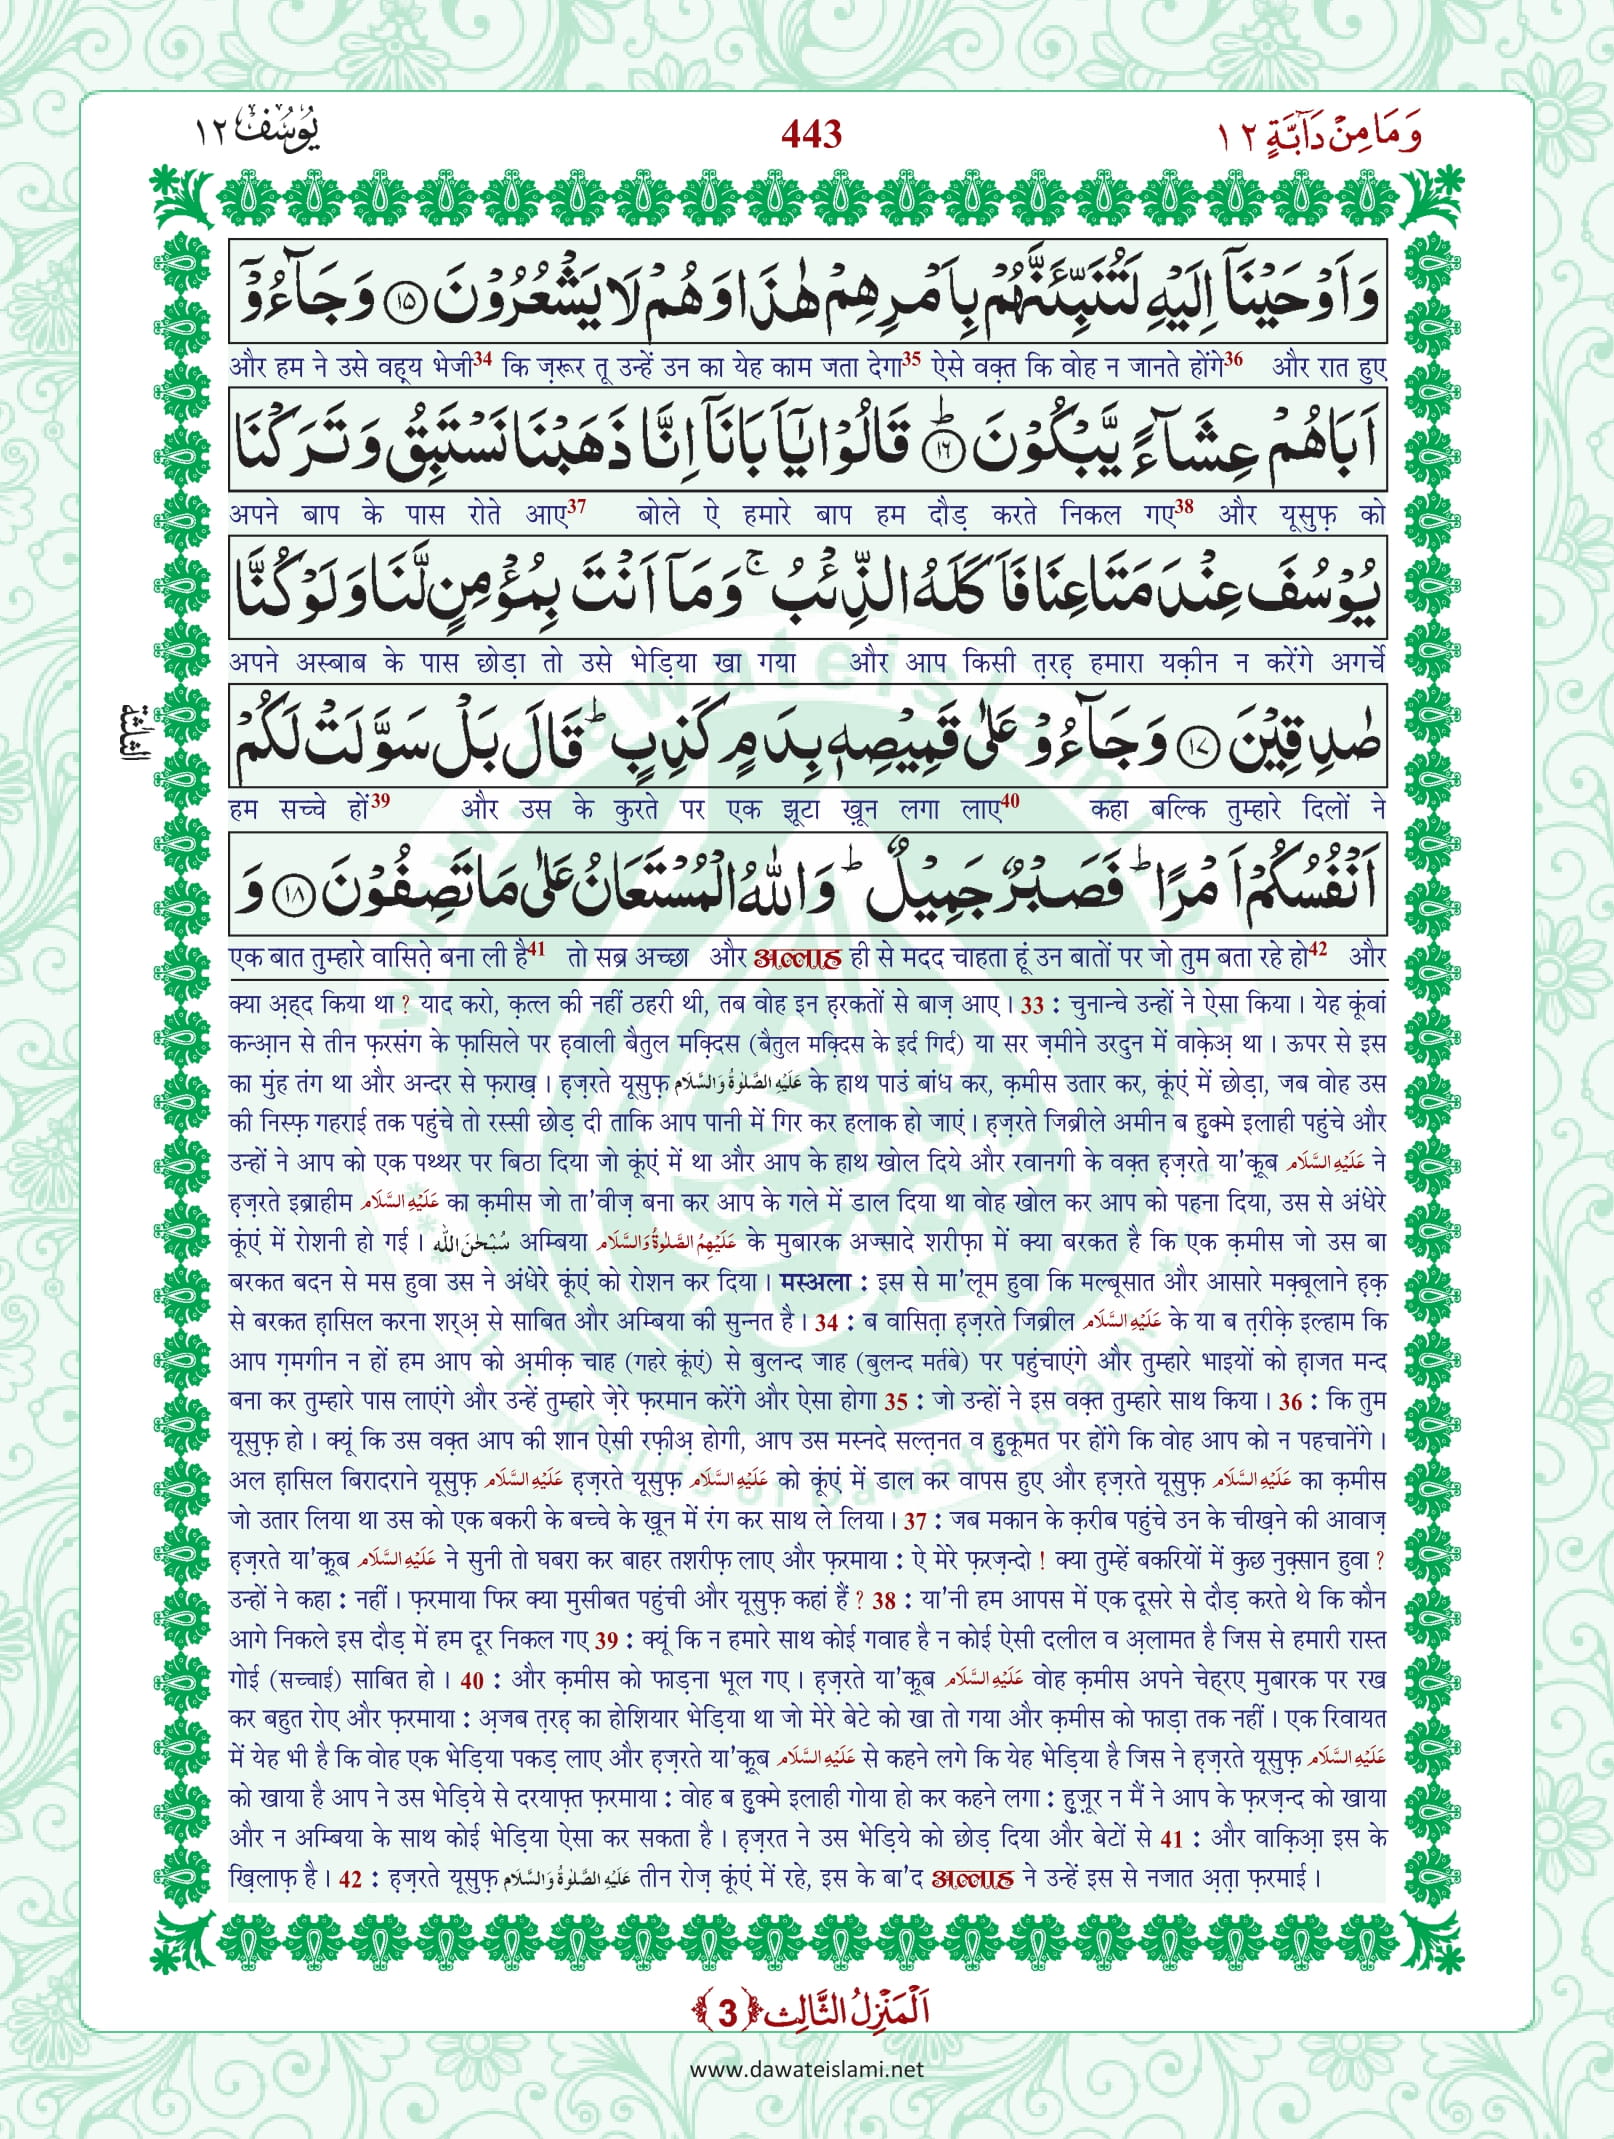 وَمَا مِنْ دَآبَّةٍ ١٢
443
يُوْسُف ١٢
وَاَوْحَيْنَاۤ اِلَيْهِ لَتُنَبِّئَنَّهُمْ بِاَمْرِهِمْ هٰذَا وَهُمْ لَا يَشْعُرُوْنَ ﴿١٥﴾ وَجَآءُوْۤ
और हम ने उसे वह़्य भेजी34 कि ज़रूर तू उन्हें उन का येह काम जता देगा35 ऐसे वक़्त कि वोह न जानते होंगे36 और रात हुए
اَبَاهُمْ عِشَآءً يَّبْكُوْنَ ﴿١٦﴾ؕ قَالُوْا يٰۤاَبَانَاۤ اِنَّا ذَهَبْنَا نَسْتَبِقُ وَتَرَكْنَا
अपने बाप के पास रोते आए37 बोले ऐ हमारे बाप हम दौड़ करते निकल गए38 और यूसुफ़ को
يُوْسُفَ عِنْدَ مَتَاعِنَا فَاَكَلَهُ الذِّئْبُ ۚ وَمَاۤ اَنْتَ بِمُؤْمِنٍ لَّنَا وَلَوْ كُنَّا
अपने अस्बाब के पास छोड़ा तो उसे भेड़िया खा गया और आप किसी त़रह़ हमारा यक़ीन न करेंगे अगर्चे
صٰدِقِيْنَ ﴿١٧﴾ وَجَآءُوْ عَلٰى قَمِيْصِهٖ بِدَمٍ كَذِبٍ ؕ قَالَ بَلْ سَوَّلَتْ لَكُمْ
الثلثة
हम सच्चे हों39 और उस के कुरते पर एक झूटा ख़ून लगा लाए40 कहा बल्कि तुम्हारे दिलों ने
اَنْفُسُكُمْ اَمْرًا ؕ فَصَبْرٌ جَمِيْلٌ ؕ وَاللّٰهُ الْمُسْتَعَانُ عَلٰى مَا تَصِفُوْنَ ﴿١٨﴾ وَ
एक बात तुम्हारे वासित़े बना ली है41 तो सब्र अच्छा और अल्लाह ही से मदद चाहता हूं उन बातों पर जो तुम बता रहे हो42 और
क्या अ़ह्द किया था ? याद करो, क़त्ल की नहीं ठहरी थी, तब वोह इन ह़रकतों से बाज़ आए । 33 : चुनान्चे उन्हों ने ऐसा किया । येह कूंवां
कन्आ़न से तीन फ़रसंग के फ़ासिले पर ह़वाली बैतुल मक़्दिस (बैतुल मक़्दिस के इर्द गिर्द) या सर ज़मीने उरदुन में वाके़अ़ था । ऊपर से इस
का मुंह तंग था और अन्दर से फ़राख़ । ह़ज़रते यूसुफ़ عَلَيْهِ الصَّلٰوةُ وَالسَّلَام के हाथ पाउं बांध कर, क़मीस उतार कर, कूंएं में छोड़ा, जब वोह उस
की निस्फ़ गहराई तक पहुंचे तो रस्सी छोड़ दी ताकि आप पानी में गिर कर हलाक हो जाएं । ह़ज़रते जिब्रीले अमीन ब हुक्मे इलाही पहुंचे और
उन्हों ने आप को एक पथ्थर पर बिठा दिया जो कूंएं में था और आप के हाथ खोल दिये और रवानगी के वक़्त ह़ज़रते या'क़ूब عَلَيْهِ السَّلَام ने
ह़ज़रते इब्राहीम عَلَيْهِ السَّلَام का क़मीस जो ता'वीज़ बना कर आप के गले में डाल दिया था वोह खोल कर आप को पहना दिया, उस से अंधेरे
कूंएं में रोशनी हो गई । سُبْحٰنَ اللّٰه अम्बिया عَلَيْهِمُ الصَّلٰوةُ وَالسَّلَام के मुबारक अज्सादे शरीफ़ा में क्या बरकत है कि एक क़मीस जो उस बा
बरकत बदन से मस हुवा उस ने अंधेरे कूंएं को रोशन कर दिया । मस्अला : इस से मा'लूम हुवा कि मल्बूसात और आसारे मक़्बूलाने ह़क़
से बरकत ह़ासिल करना शर्अ़ से साबित और अम्बिया की सुन्नत है । 34 : ब वासित़ा ह़ज़रते जिब्रील عَلَيْهِ السَّلَام के या ब त़रीक़े इल्हाम कि
आप ग़मगीन न हों हम आप को अ़मीक़ चाह (गहरे कूंएं) से बुलन्द जाह (बुलन्द मर्तबे) पर पहुंचाएंगे और तुम्हारे भाइयों को ह़ाजत मन्द
बना कर तुम्हारे पास लाएंगे और उन्हें तुम्हारे ज़ेरे फ़रमान करेंगे और ऐसा होगा 35 : जो उन्हों ने इस वक़्त तुम्हारे साथ किया । 36 : कि तुम
यूसुफ़ हो । क्यूं कि उस वक़्त आप की शान ऐसी रफ़ीअ़ होगी, आप उस मस्नदे सल्त़नत व हुकूमत पर होंगे कि वोह आप को न पहचानेंगे ।
अल ह़ासिल बिरादराने यूसुफ़ عَلَيْهِ السَّلَام ह़ज़रते यूसुफ़ عَلَيْهِ السَّلَام को कूंएं में डाल कर वापस हुए और ह़ज़रते यूसुफ़ عَلَيْهِ السَّلَام का क़मीस
जो उतार लिया था उस को एक बकरी के बच्चे के ख़ून में रंग कर साथ ले लिया । 37 : जब मकान के क़रीब पहुंचे उन के चीख़ने की आवाज़
ह़ज़रते या'क़ूब عَلَيْهِ السَّلَام ने सुनी तो घबरा कर बाहर तशरीफ़ लाए और फ़रमाया : ऐ मेरे फ़रज़न्दो ! क्या तुम्हें बकरियों में कुछ नुक़्सान हुवा ?
उन्हों ने कहा : नहीं । फ़रमाया फिर क्या मुसीबत पहुंची और यूसुफ़ कहां हैं ? 38 : या'नी हम आपस में एक दूसरे से दौड़ करते थे कि कौन
आगे निकले इस दौड़ में हम दूर निकल गए 39 : क्यूं कि न हमारे साथ कोई गवाह है न कोई ऐसी दलील व अ़लामत है जिस से हमारी रास्त
गोई (सच्चाई) साबित हो । 40 : और क़मीस को फाड़ना भूल गए । ह़ज़रते या'क़ूब عَلَيْهِ السَّلَام वोह क़मीस अपने चेह्रए मुबारक पर रख
कर बहुत रोए और फ़रमाया : अ़जब त़रह़ का होशियार भेड़िया था जो मेरे बेटे को खा तो गया और क़मीस को फाड़ा तक नहीं । एक रिवायत
में येह भी है कि वोह एक भेड़िया पकड़ लाए और ह़ज़रते या'क़ूब عَلَيْهِ السَّلَام से कहने लगे कि येह भेड़िया है जिस ने ह़ज़रते यूसुफ़ عَلَيْهِ السَّلَام
को खाया है आप ने उस भेड़िये से दरयाफ़्त फ़रमाया : वोह ब हुक्मे इलाही गोया हो कर कहने लगा : हुज़ूर न मैं ने आप के फ़रज़न्द को खाया
और न अम्बिया के साथ कोई भेड़िया ऐसा कर सकता है । ह़ज़रत ने उस भेड़िये को छोड़ दिया और बेटों से 41 : और वाक़िआ़ इस के
ख़िलाफ़ है । 42 : ह़ज़रते यूसुफ़ عَلَيْهِ الصَّلٰوةُ وَالسَّلَام तीन रोज़ कूंएं में रहे, इस के बा'द अल्लाह ने उन्हें इस से नजात अ़त़ा फ़रमाई ।
اَلْمَنْزِلُ الثَّالِث ﴿3﴾
www.dawateislami.net